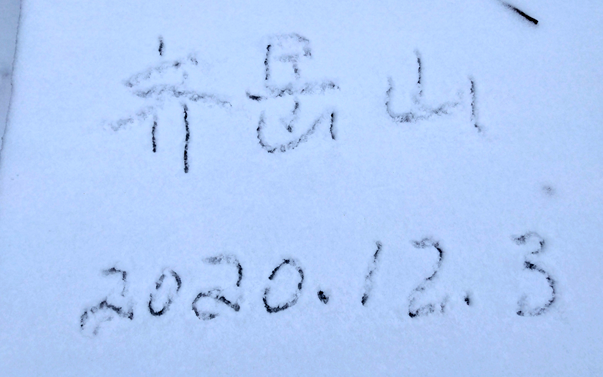 齐岳山
2020.12.3